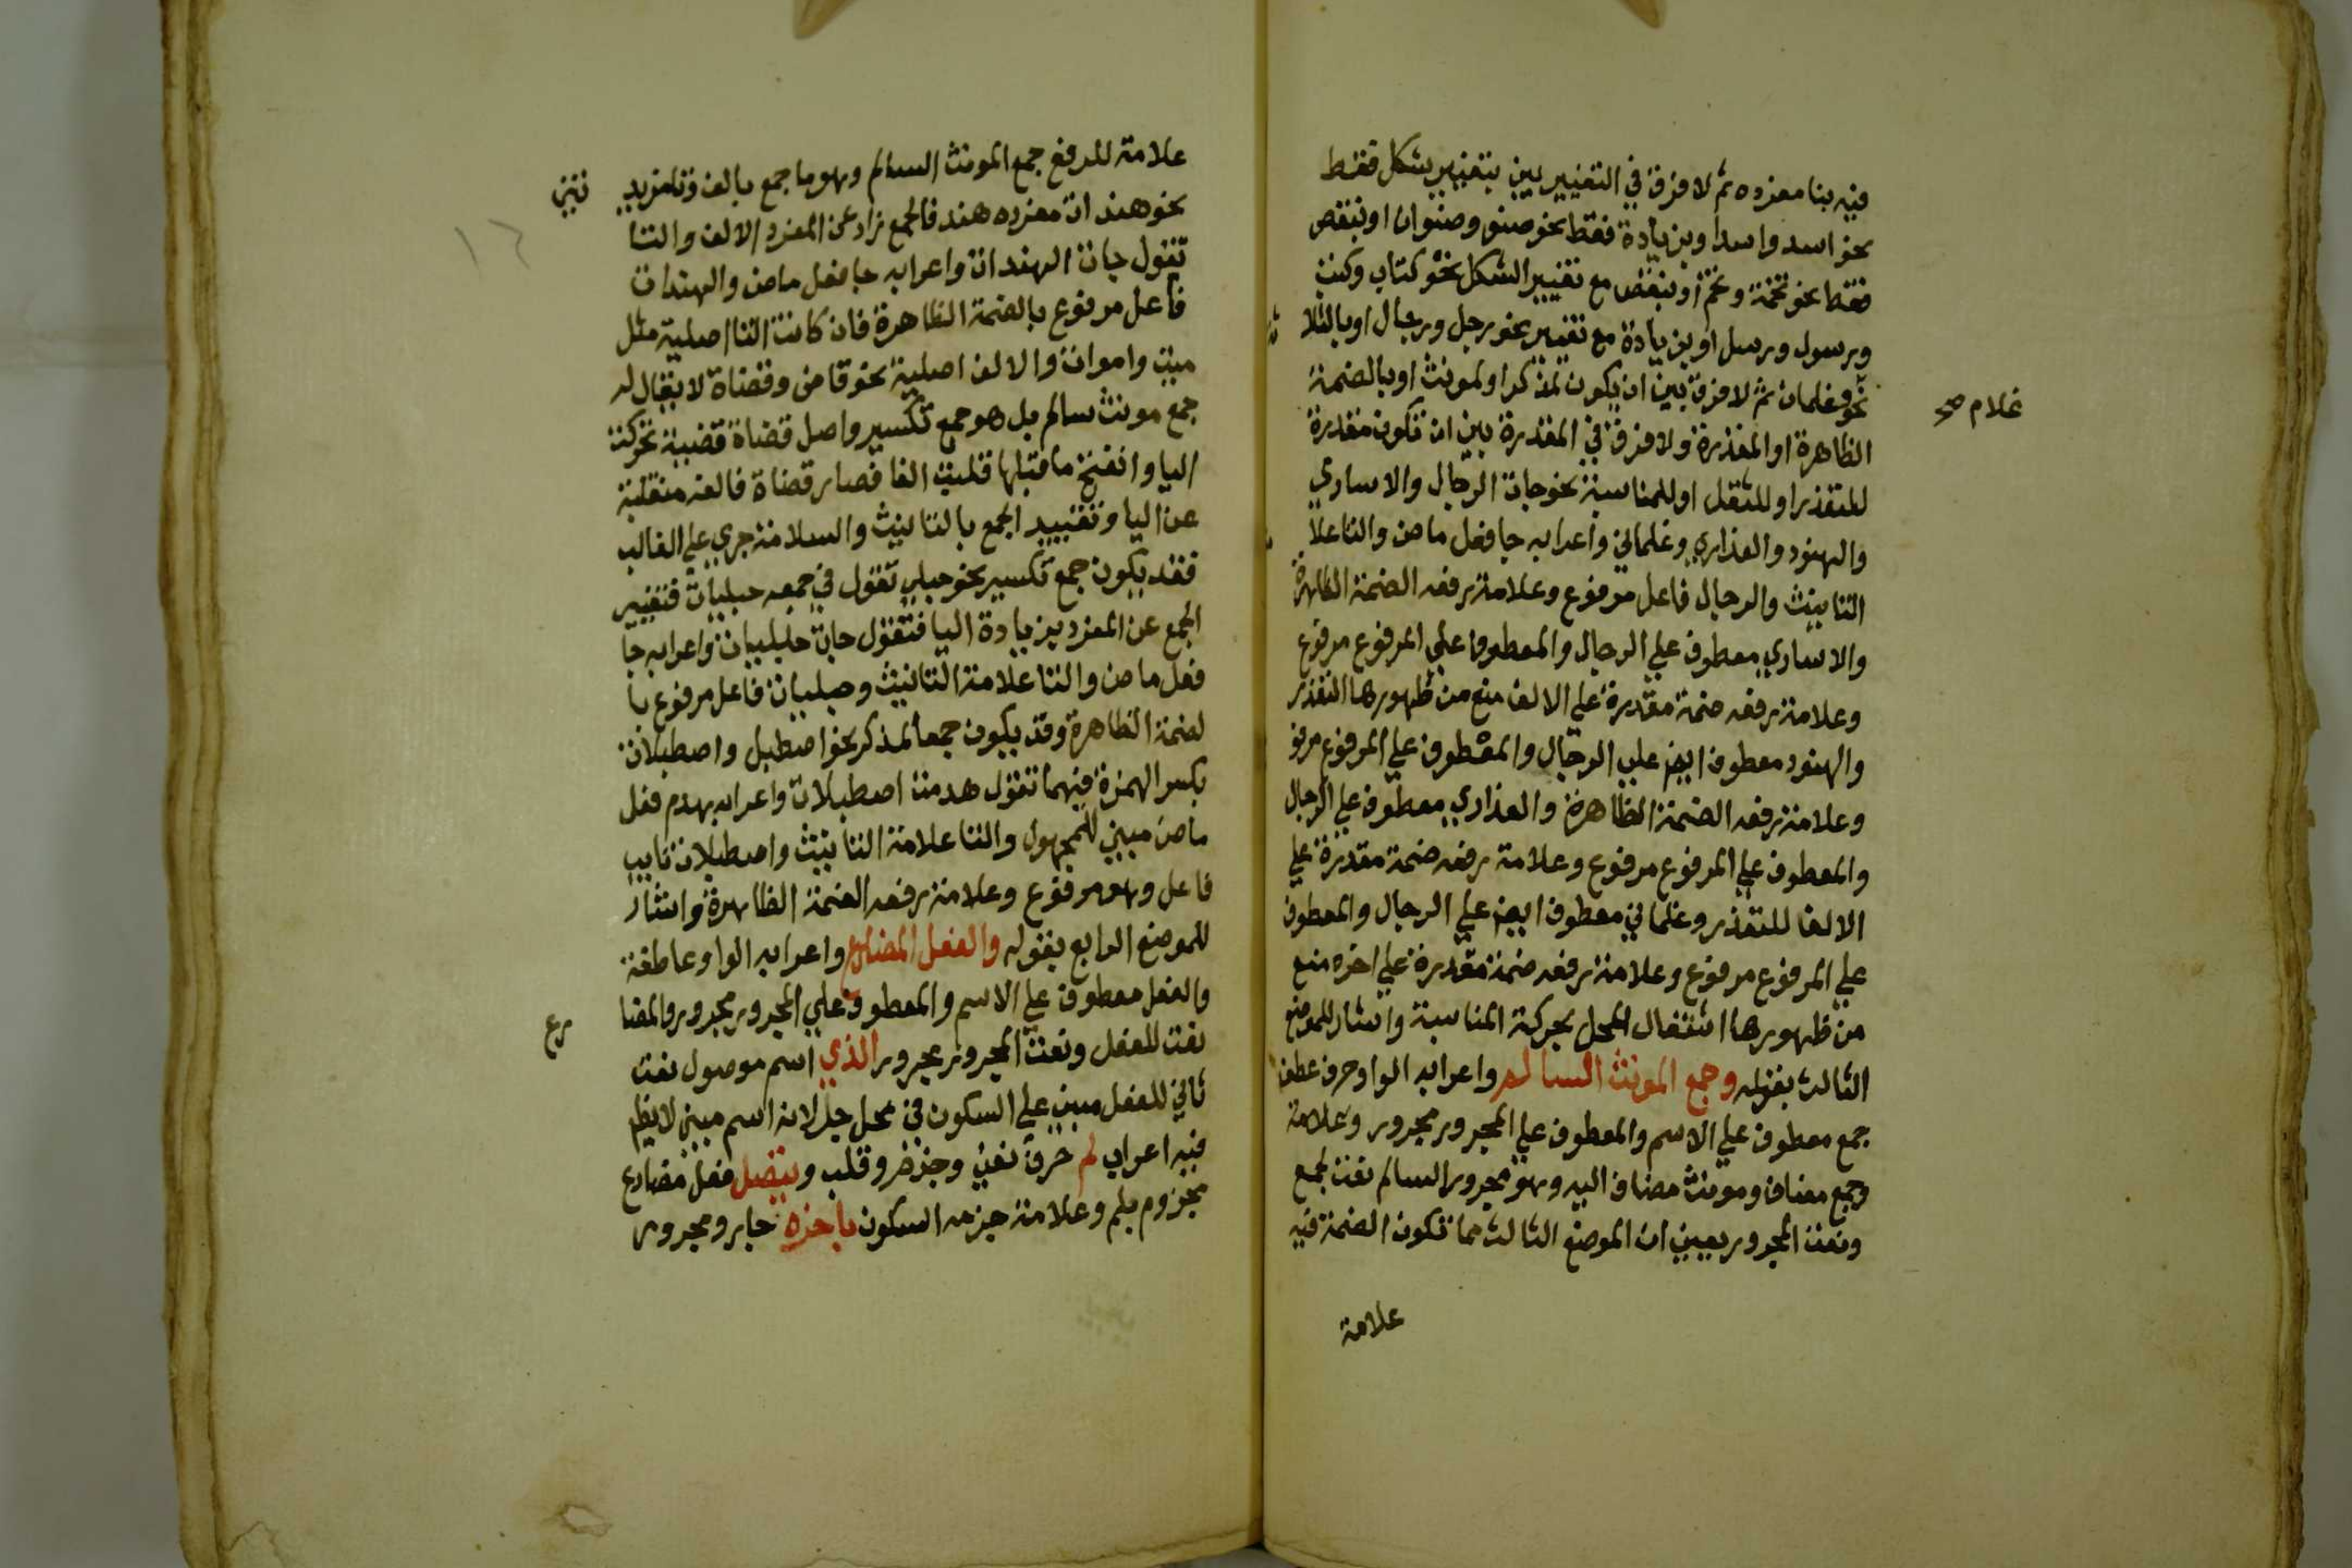 فيه بنا مفرده ثم لا فرق في التغيير بين بتغيير شكل فقط
نحو اسد واسد او بزيادة فقط نحو صنو وصنوان او بنقص
فقط نحو تخمة وتخم او بنقص مع تغيير الشكل نحو كتاب وكتب
ورسول ورسل او بزيادة مع تغيير نحو رجل ورجال او بالثلا ثة
نحو وغلمان ثم لا فرق بين ان يكون لمذكر او لمونث او بالضمة
غلام صح
الظاهرة او المقدرة ولا فرق في المقدرة بين ان تكون مقدرة
للتعذر او للثقل او للمناسبة نحو جات الرجال والاساري
والهنود والعذاري وغلماني واعرابه جا فعل ماض والتا علا
التانيث والرجال فاعل مرفوع وعلامة رفعه الضمة الظاهرة
والاساري معطوف علي الرجال والمعطوف علي المرفوع مرفوع
وعلامة رفعه ضمة مقدرة علي الالف منع من ظهورها التعذر
والهنود معطوف ايضا علي الرجال والمعطوف علي المرفوع مرفو
وعلامة رفعه الضمة الظاهرة والعذاري معطوف علي الرجال
والمعطوف علي المرفوع مرفوع وعلامة رفعه ضمة مقدرة علي
الالف للتعذر وغلماني معطوف ايضا علي الرجال والمعطوف
علي المرفوع مرفوع وعلامة رفعه ضمة مقدرة علي اخره منع
من ظهورها اشتغال المحل بحركة المناسبة واشار للموضع
الثالث بقوله وجمع المونث السالم واعرابه الواو حرف عطف
جمع معطوف علي الاسم والمعطوف علي المجرور مجرور وعلامة
وجمع مضاف ومونث مضاف اليه وهو مجرور السالم نعت لجمع
ونعت المجرور يعني ان الموضع الثالث مما تكون الضمة فيه
علامة
علامة للرفع جمع المونث السالم وهو ما جمع بالف وتا مزيد تين
نحو هندات مفرده هند فالجمع زاد عن المفرد الالف والتا
١٦
تقول جات الهندات واعرابه جا فعل ماض والهندات
فاعل مرفوع بالضمة الظاهرة فان كانت التا اصلية مثل
ميت واموات والالف اصلية نحو قاض وقضاة لا يقال له
جمع مونث سالم بل هو جمع تكسير واصل قضاة قضية تحركت
اليا وانفتح ما قبلها قلبت الفا فصار قضاة فالفه منقلبة
عن اليا وتقييد الجمع بالتانيث والسلامة جري علي الغالب
فقد يكون جمع تكسير نحو حبلي تقول في جمعه حبليات فتغيير
الجمع عن المفرد بزيادة اليا فتقول جات حبليات واعرابه جا
فعل ماض والتا علامة التانيث وحبليات فاعل مرفوع با
لضمة الظاهرة وقد يكون جمعا لمذكر نحو اصطبل واصطبلات
بكسر الهمزة فيهما تقول هدمت اصطبلات واعرابه هدم فعل
ماض مبني للمجهول والتا علامة التانيث واصطبلات نايب
فاعل وهو مرفوع وعلامة رفعه الضمة الظاهرة واشار
للموضع الرابع بقوله والفعل المضارع واعرابه الواو عاطفة
والفعل معطوف علي الاسم والمعطوف علي المجرور مجرور والمضا رع
نعت للفعل ونعت المجرور مجرور الذي اسم موصول نعت
ثاني للفعل مبني علي السكون في محل جر لانه اسم مبني لا يظهر
فيه اعراب لم حرف نفي وجزم وقلب ويتصل فعل مضارع
مجزوم بلم وعلامة جزمه السكون باخره جار ومجرور